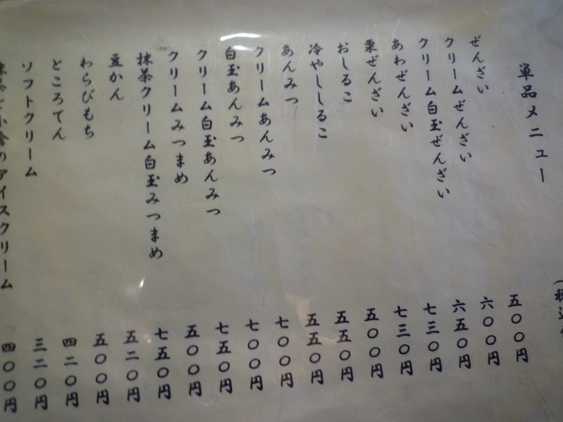 (税込
単品メニュー
ぜんざい 五〇〇円
クリームぜんざい 六〇〇円
クリーム白玉ぜんざい 六五〇円
あわぜんざい 七三〇円
栗ぜんざい 七三〇円
おしるこ 五〇〇円
冷やししるこ 五五〇円
あんみつ 五五〇円
クリームあんみつ 七〇〇円
白玉あんみつ 七〇〇円
クリーム白玉あんみつ 七五〇円
クリームみつまめ 五〇〇円
抹茶クリーム白玉みつまめ 七五〇円
豆かん 五二〇円
わらびもち 五〇〇円
ところてん 四二〇円
ソフトクリーム 三二〇円
抹茶と小倉のアイスクリーム 四〇〇円